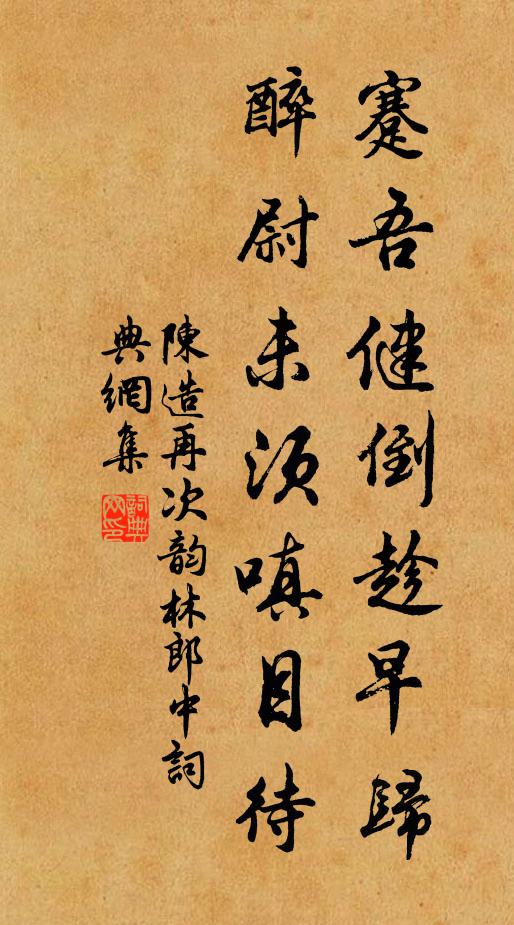 蹇吾健倒趁早歸
醉尉未須嗔目待
陳造再次韵林郎中詞
典網集
詞典网印